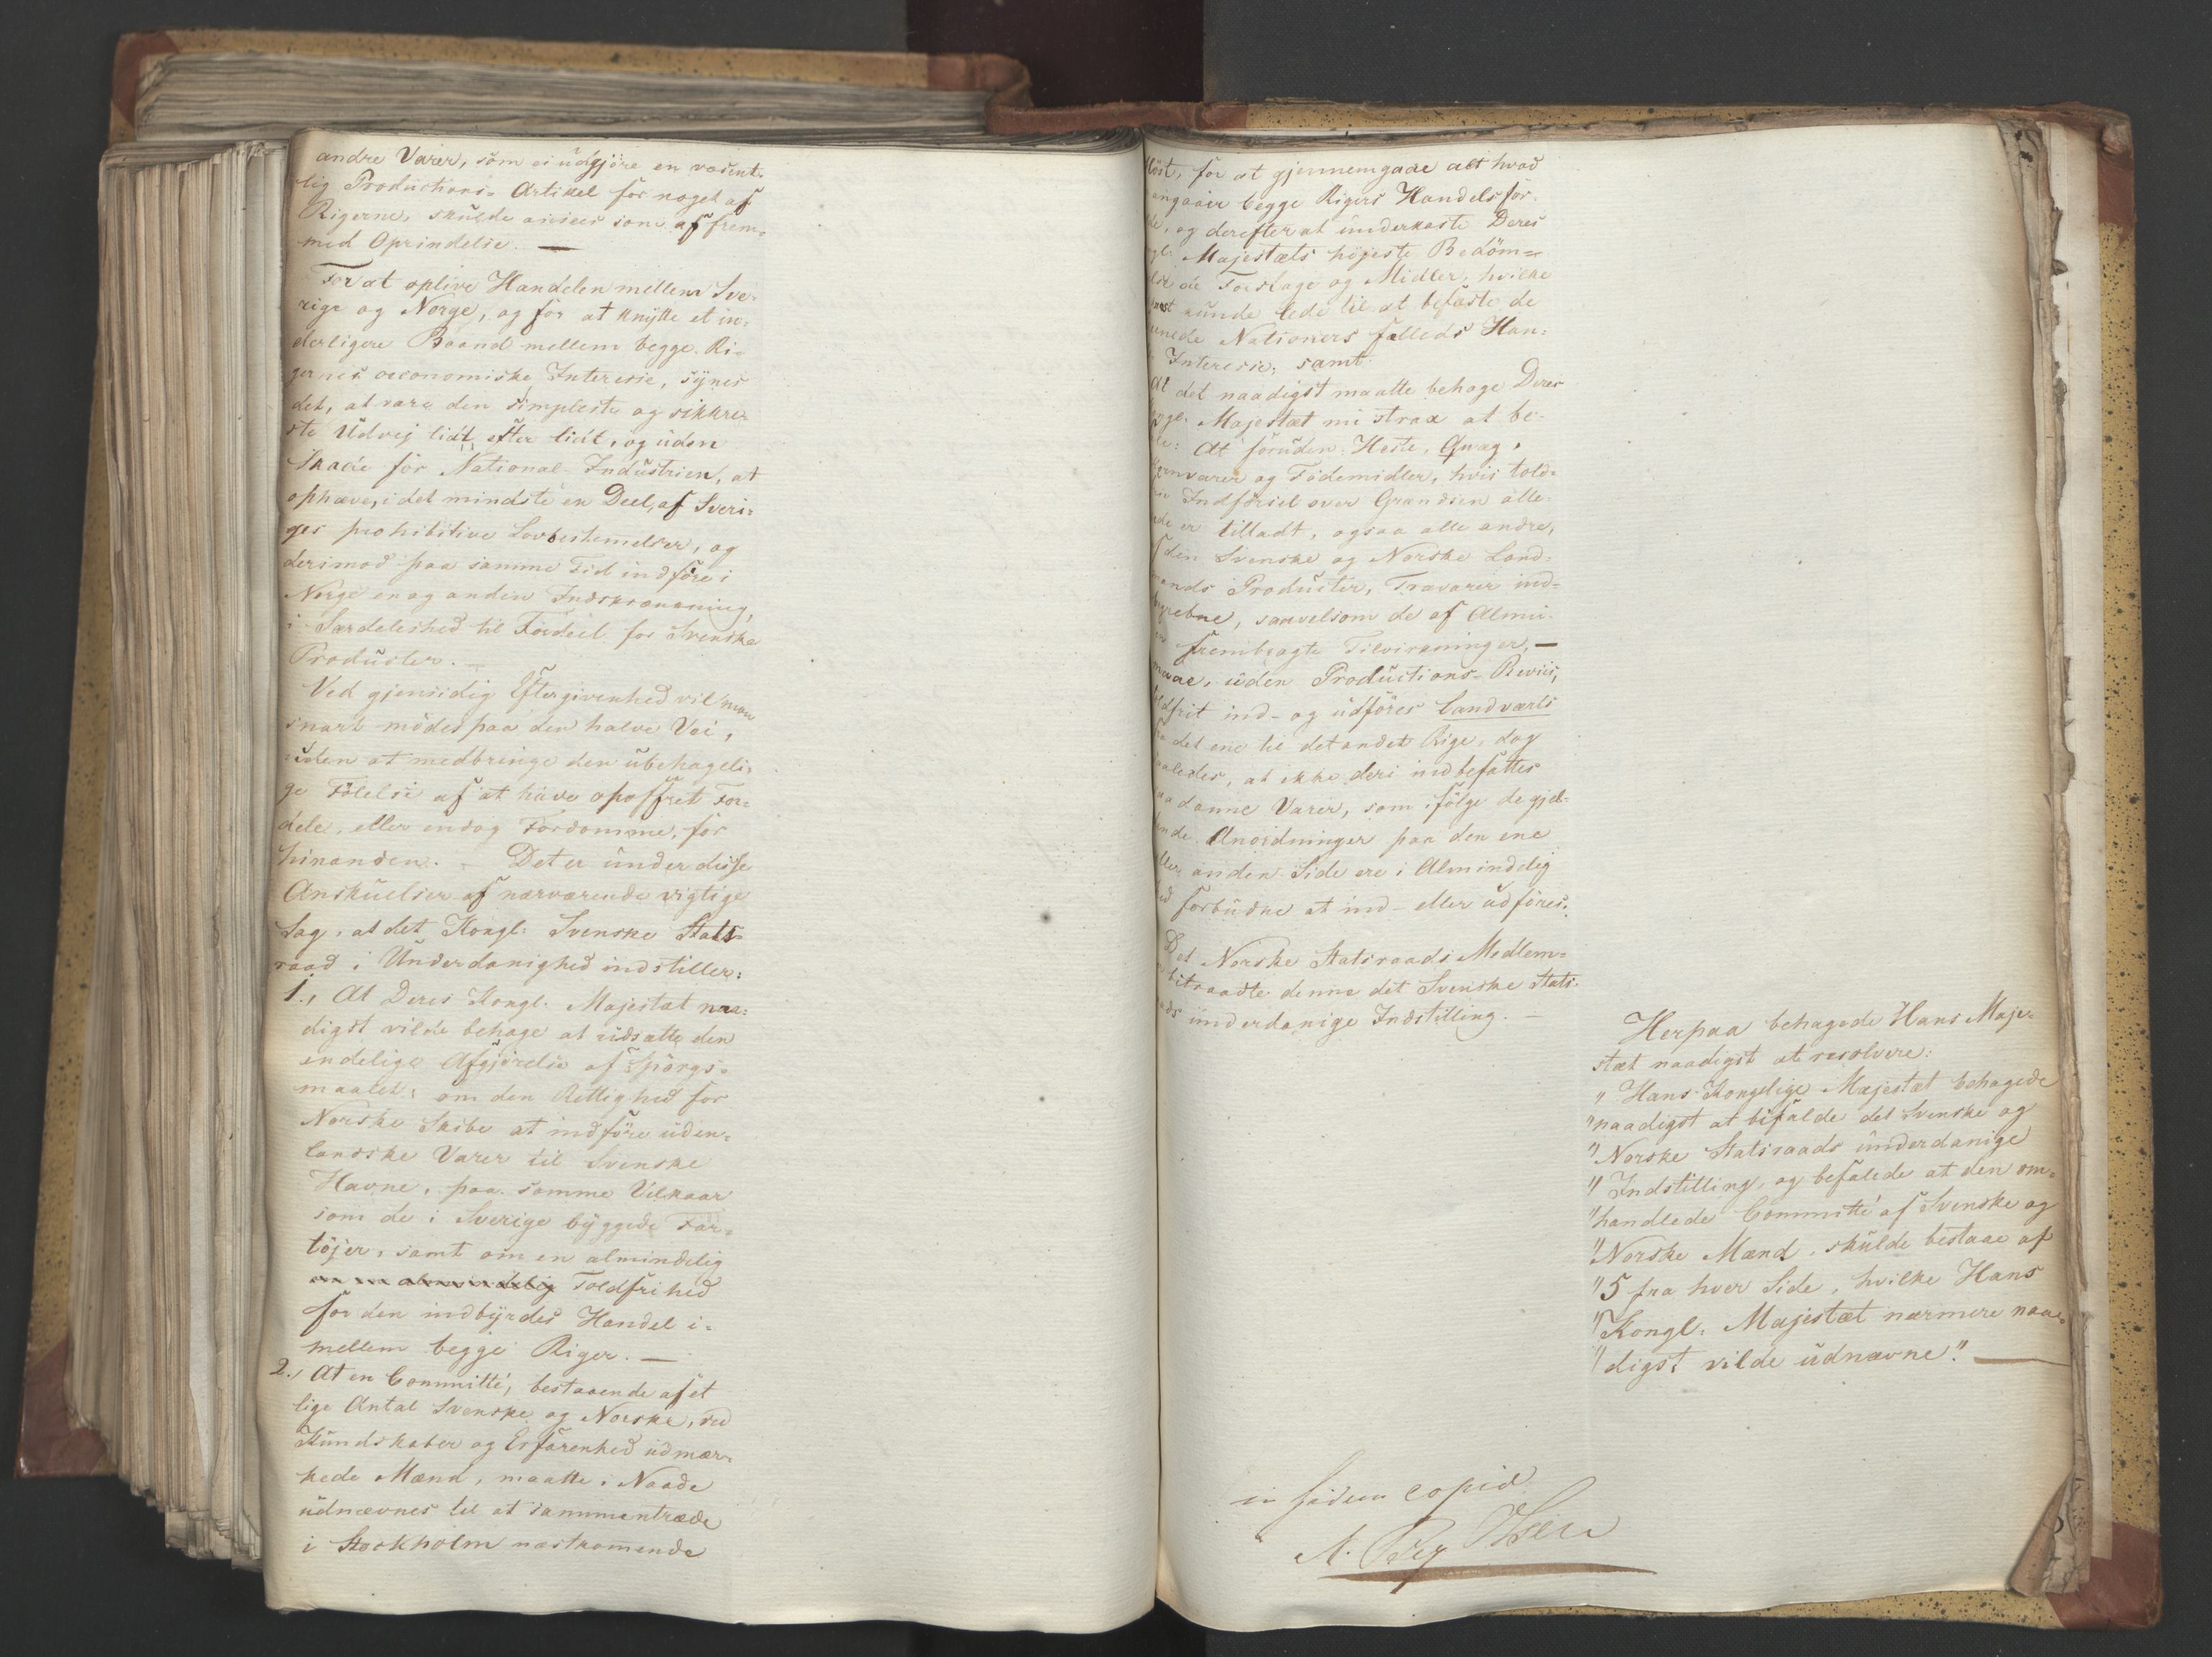 andre Varer, som ei udgjöre en væsent-
lig Productions- Artikel for noget af
Rigerne, skulde ansees som af frem-
med Oprindelse. —
For at oplive Handelen mellem Sve-
rige og Norge, og for at knytte et in-
derligere Baand mellem begge Ri-
gernes oeconomiske Interesse, synes
det, at være den simpleste og sikkre-
ste Udvej lidt efter lidt, og uden
Skade for National-Industrien, at
ophæve, i det mindste en Deel, af Sveri-
ges prohibitive Lovbestemmelser, og
derimod paa samme Tid indföre i
Norge en og anden Indskrænkning,
i Særdeleshed til Fordeel for Svenske
Producter. —
Ved gjensidig Eftergivenhed vil man
snart mödes paa den halve Vei,
uden at medbringe den ubehageli-
ge Fölelse af at have opoffret For-
dele, eller endog Fordomme, for
hinanden. — Det er under disse
Anskuelser af nærværende vigtige
Sag, at det Kongl: Svenske Stats-
raad i Underdanighed indstiller:
1., At Deres Kongl: Majestæt naa-
digst vilde behage at udsætte den
endelige Afgjörelse af Spörgs-
maalet: om den Rettighed for
Norske Skibe at indföre uden-
landske Varer til Svenske
Havne, paa samme Vilkaar
som de i Sverige byggede Far-
töjer, samt om en almindelig
om en almindelig Toldfrihed
for den indbyrdes Handel i-
mellem begge Riger. —
2., At en Committé, bestaaende af et
lige Antal Svenske og Norske, ved
Kundskaber og Erfarenhed udmær-
kede Mænd, maatte i Naade
udnævnes til at sammentræde
i Stockholm næstkommende
Höst, for at gjennemgaae alt hvad
angaaer begge Rigers Handelsfor-
, og derefter at underkaste Deres
Majestæts höjeste Bedöm-
de Forslage og Midler, hvilke
kunde lede til at befæste de
Nationers fælleds Han-
Interesse; samt
At det naadigst maatte behage Deres
Majestæt nu strax at be-
: At foruden Heste, Qvæg,
Jernvarer og Födemidler, hvis told-
Indförsel over Grændsen alle-
er tilladt, ogsaa alle andre,
den Svenske og Norske Land-
mands Producter, Trævarer ind-
begrebne, saavelsom de af Almu-
frembragte Tilvirkninger, —
maae, uden Productions-Beviis,
toldfrit ind- og udföres landværts
det ene til det andet Rige, dog
saaledes, at ikke deri indbefattes
saadanne Varer, som ifölge de gjel-
dende Anordninger paa den ene
eller anden Side ere i Almindelig-
hed forbudne at ind- eller udföres.
Det Norske Statsraads Medlem-
bitraadte denne det Svenske Stats-
underdanige Indstilling. —
Herpaa behagede Hans Maje-
stæt naadigst at resolvere:
" Hans Kongelige Majestæt behagede
" naadigst at bifalde det Svenske og
" Norske Statsraads underdanige
" Indstilling, og befalede at den om-
" handlede Committé af Svenske og
" Norske Mænd, skulde bestaae af
" 5 fra hver Side, hvilke Hans
" Kongl: Majestæt nærmere naa-
" digst vilde udnævne." —
in fidem copiæ